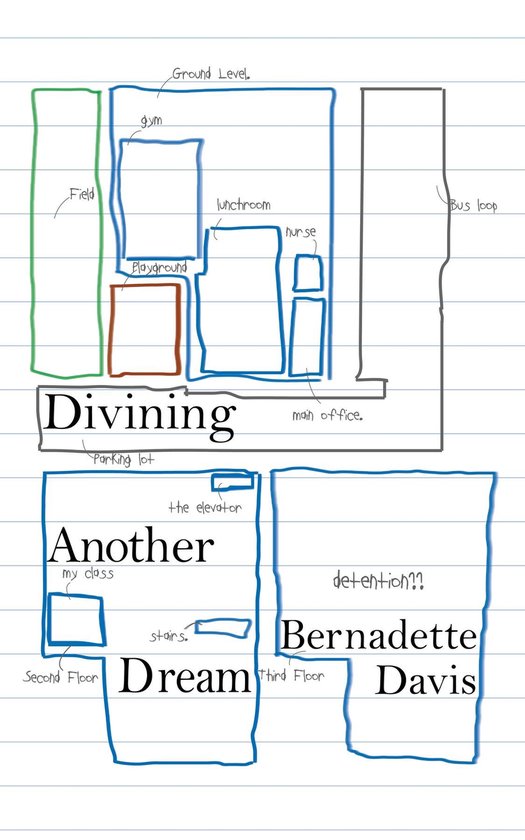 Ground Level.
gym
Field
lunchroom
Bus loop
nurse
Playground
Divining
main office.
Parking lot
the elevator
Another
my class
detention??
stairs.
Bernadette
Second Floor
Dream
Third Floor
Davis